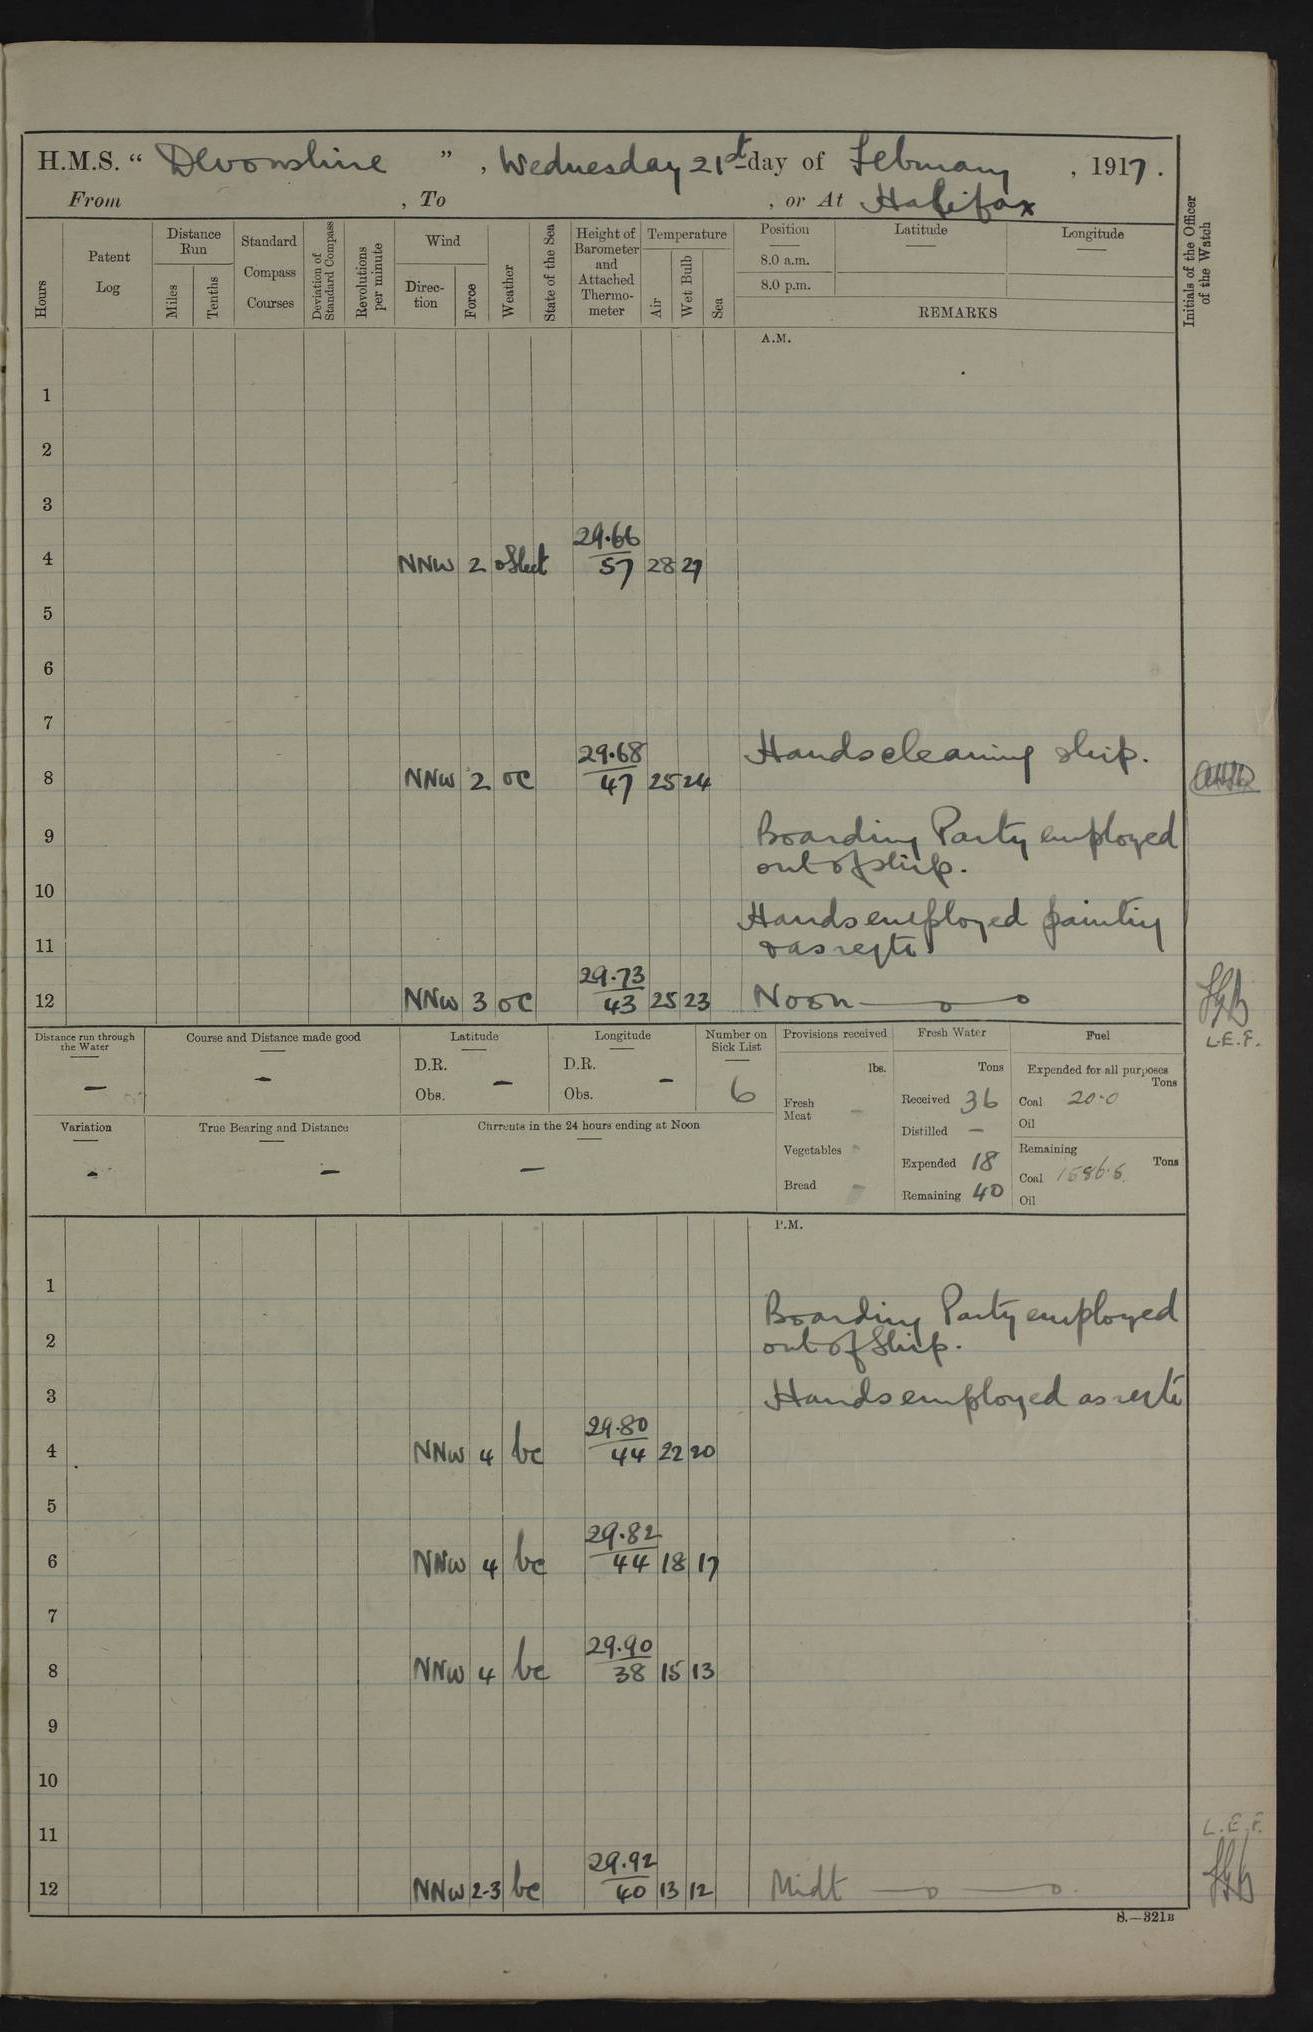 H.M.S. “ Devonshire ” , Wednesday 21st day of February , 1917.
From , To , or At Halifax
Hours
Patent Log
Distance Run
Miles
Tenths
Standard Compass Courses
Deviation of Standard Compass
Revolutions per minute
Wind
Direction
Force
Weather
State of the Sea
Height of Barometer and Attached Thermometer
Temperature
Air
Wet Bulb
Sea
Position
8.0 a.m.
8.0 p.m.
Latitude
Longitude
REMARKS
Initials of the Officer of the Watch
A.M.
1
2
3
29.66
4 NNW 2 o Sleet 57 28 27
5
6
7
29.68 Hands cleaning ship.
8 NNW 2 oc 47 25 24
9 Boarding Party employed
out of ship.
10
Hands employed painting
11 & as reqte
29.73
12 NNW 3 oc 43 25 23 Noon
L.E.F.
Distance run through the Water
—
Course and Distance made good
—
Latitude
D.R.
Obs. —
Longitude
D.R.
Obs. —
Number on Sick List
6
Provisions received
lbs.
Fresh Meat -
Vegetables -
Bread -
Fresh Water
Tons
Received 36
Distilled —
Expended 18
Remaining 40
Fuel
Expended for all purposes
Tons
Coal 20.0
Oil
Remaining
Tons
Coal
Oil
Variation
-
True Bearing and Distance
—
Currents in the 24 hours ending at Noon
—
P.M.
1
Boarding Party employed
2 out of Ship.
3 Hands employed as reqte
29.80
4 NNW 4 bc 44 22 20
5
29.82
6 NNW 4 bc 44 18 17
7
29.90
8 NNW 4 bc 38 15 13
9
10
11 L.E.F.
29.92
12 NNW 2-3 bc 40 13 12 Midt
S.—321B